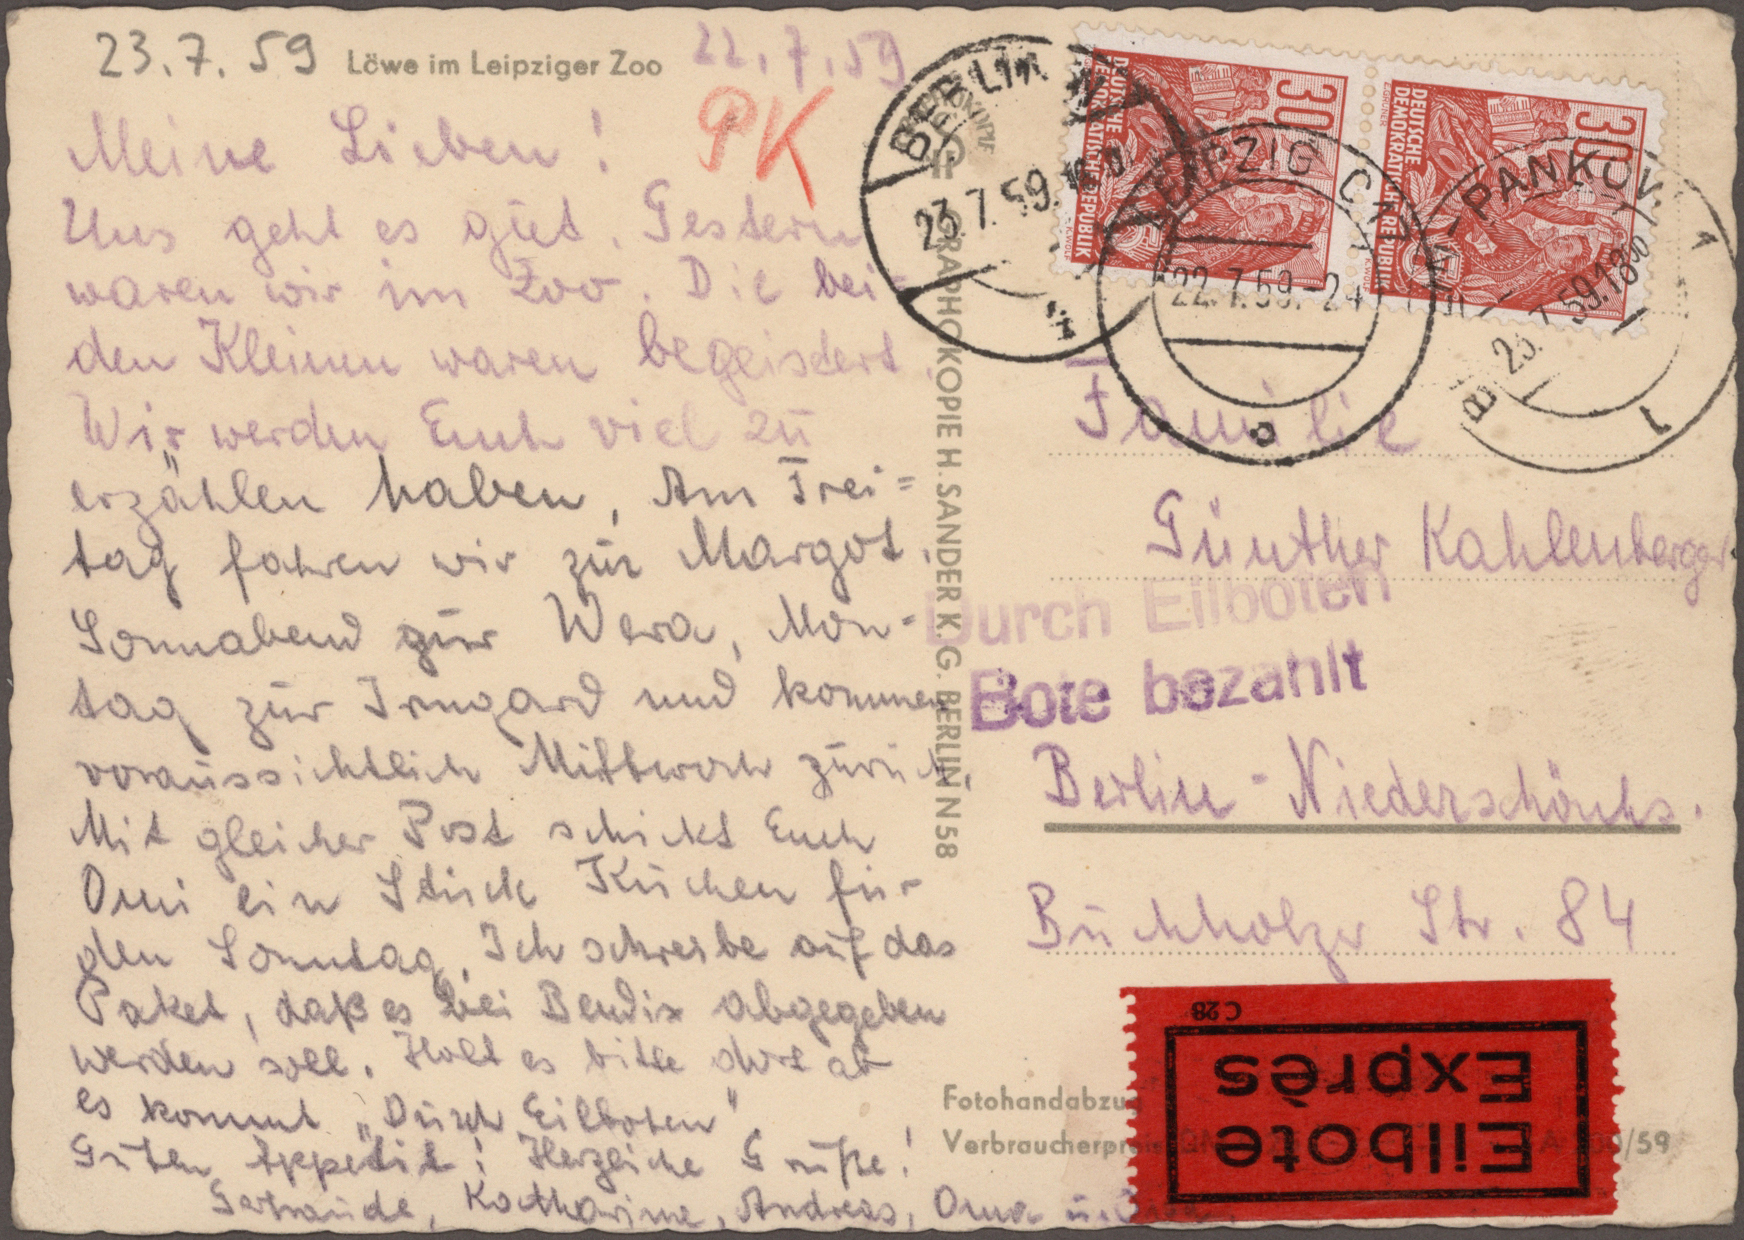 23.7.59
Löwe im Leipziger Zoo
22.7.59
PK
Meine Lieben!
Uns geht es gut. Gestern
waren wir im Zoo. Die bei=
den Kleinen waren begeistert.
Wir werden Euch viel zu
erzählen haben. Am Frei=
tag fahren wir zur Margot.
Sonnabend zur Wera, Mon-
tag zur Irmgard und kommen
voraussichtlich Mittwoch zurück.
Mit gleicher Post schickt Euch
Omi ein Stück Kuchen für
den Sonntag. Ich schreibe auf das
Paket, daß es bei Bendix abgegeben
werden soll. Holt es bitte dort ab
es kommt „Durch Eilboten"
Guten Appetit! Herzliche Grüße!
Gertraude, Katharina, Andreas, Oma u.
GRAPHOKOPIE H. SANDER K. G. BERLIN N 58
BERLIN
23.7.59.
LEIPZIG C
22.7.59.-24
PANKOW
23.7.59.18
1
30
DEUTSCHE
DEMOKRATISCHE REPUBLIK
30
DEUTSCHE
DEMOKRATISCHE REPUBLIK
Familie
Günther Kahlenberger
Durch Eilboten
Bote bezahlt
Berlin-Niederschönhs.
Buchholzer Str. 84
Fotohandabzug
Verbraucherpreis
/59
C 28
Eilbote
Exprès